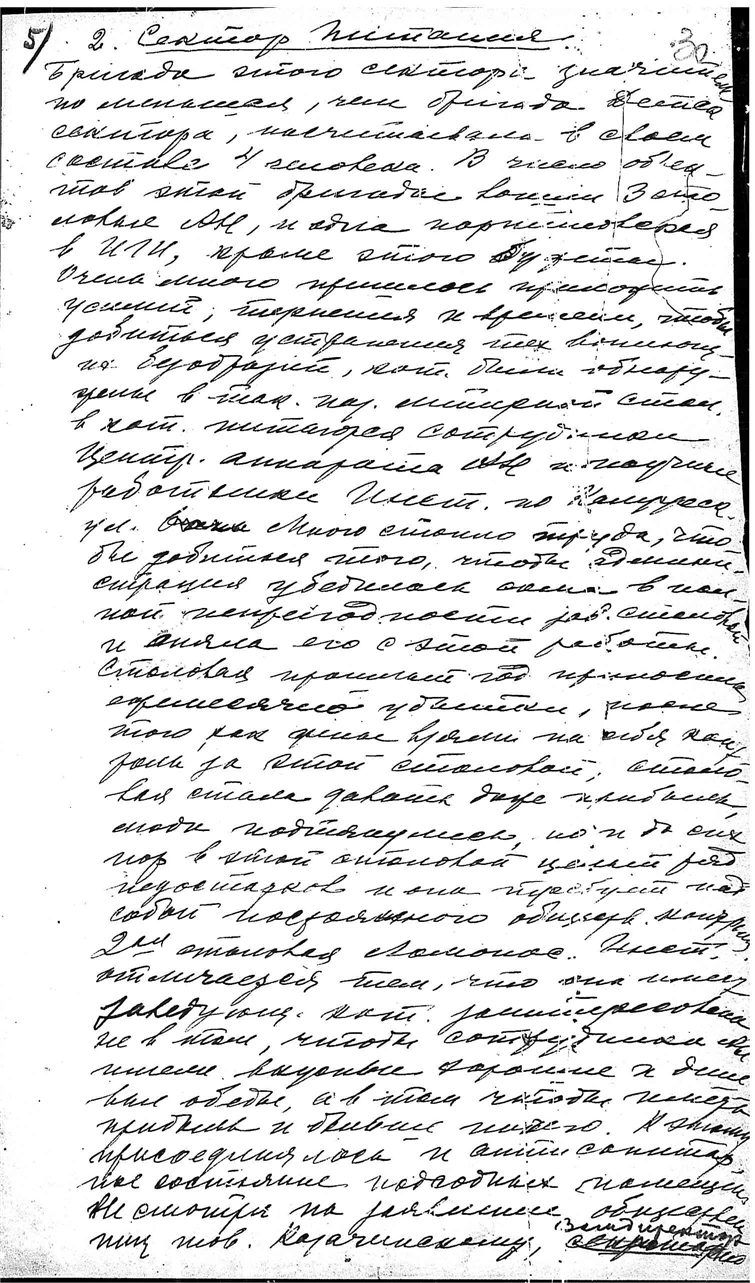 5/ 2. Сектор Питания. 30
Бригада этого сектора значитель
но меньшая, чем бригада Детск
сектора, насчитывала в своем
составе 4 человека. В число об'ек-
тов этой бригады вошли 3 сто
ловые АН, и одна
в ИГН, кроме этого Буфеты.
Очень много пришлось приложить
усилий, терпения и времени, чтобы
добиться устранения тех вопиющ-
их безобразий, кот. были обнару-
жены в так. наз. литерной столов.
в кот. питаются сотрудники
Центр. аппарата АН и научные
работники Инст. по Калужск.
ул. Много стоило труда, что
бы добиться того, чтобы админи-
страция убедилась сама в пол-
ной непригодности зав. столовой
и сняла его с этой работы.
Столовая прошлый год приносила
ежемесячно убытки, после
того как жены взяли на себя конт
роль за этой столовой, столо-
вая стала давать даже прибыль,
люди подтянулись, но и до сих
пор в этой столовой целый ряд
недостатков и она требует над
собой постоянного обществ. контроля.
2ая столовая Ломонос. Инст.
отличается тем, что она имеет
заведующ. кот. заинтересована
не в том, чтобы сотрудники АН
имели вкусные хорошие и деше
вые обеды, а в том чтобы иметь
прибыль и больше ничего. К этому
присоединялось и антисанитар
ное состояние подсобных помещений
Не смотря на заявление обществен
ниц тов. Карачинскому, Замдиректора